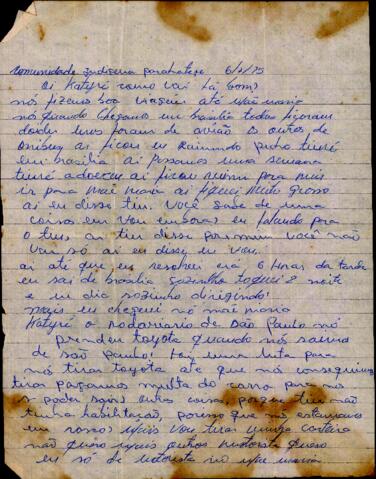 comunidade Indigena parakateje 6/2/95
Oi Katyré como vai tá bom?
nós fizemos boa viagem até mãe maria
nós quando chegamos em brasilia todas ficaram
doidos uns foram de avião os outros de
ônibus ai ficou eu Raimundo tuiré
em brasilia ai passamos uma semana
tuiré adoeceu ai ficou ruim para nois
ir para mãe maria ai fiquei muito grosso
ai eu disse tiu. você sabe de uma
coisa eu vou embora eu falando para
o tiu, ai tiu disse pra mim você não
vai só ai eu disse eu vou.
ai até que eu resolveu era 6 Horas da tarde
eu sai de brasilia sozinho toquei 2 noite
e um dia sozinho dirigindo!
mais eu cheguei no mãe maria
Katyré o rodoviario de são Paulo nó
prendeu toyota quando nós saimos
de são paulo! fez uma luta para
nós tirar toyota até que nó conseguimos
tirar pagamos multa do carro para nó
poder sair, outra coisa, porque tiu não
tinha habilitação, por isso que nó estavamos
em rosso, mais vou tirar minha carteira
não quero mais outros motorista quero
eu só de motorista no mãe maria